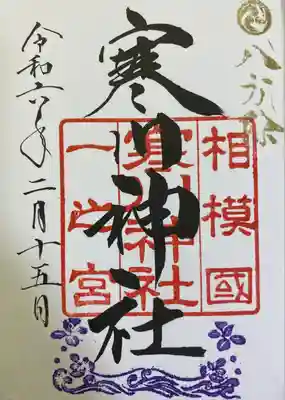 八方除
寒川神社
相模國
寒川神社
一之宮
令和六年二月十五日